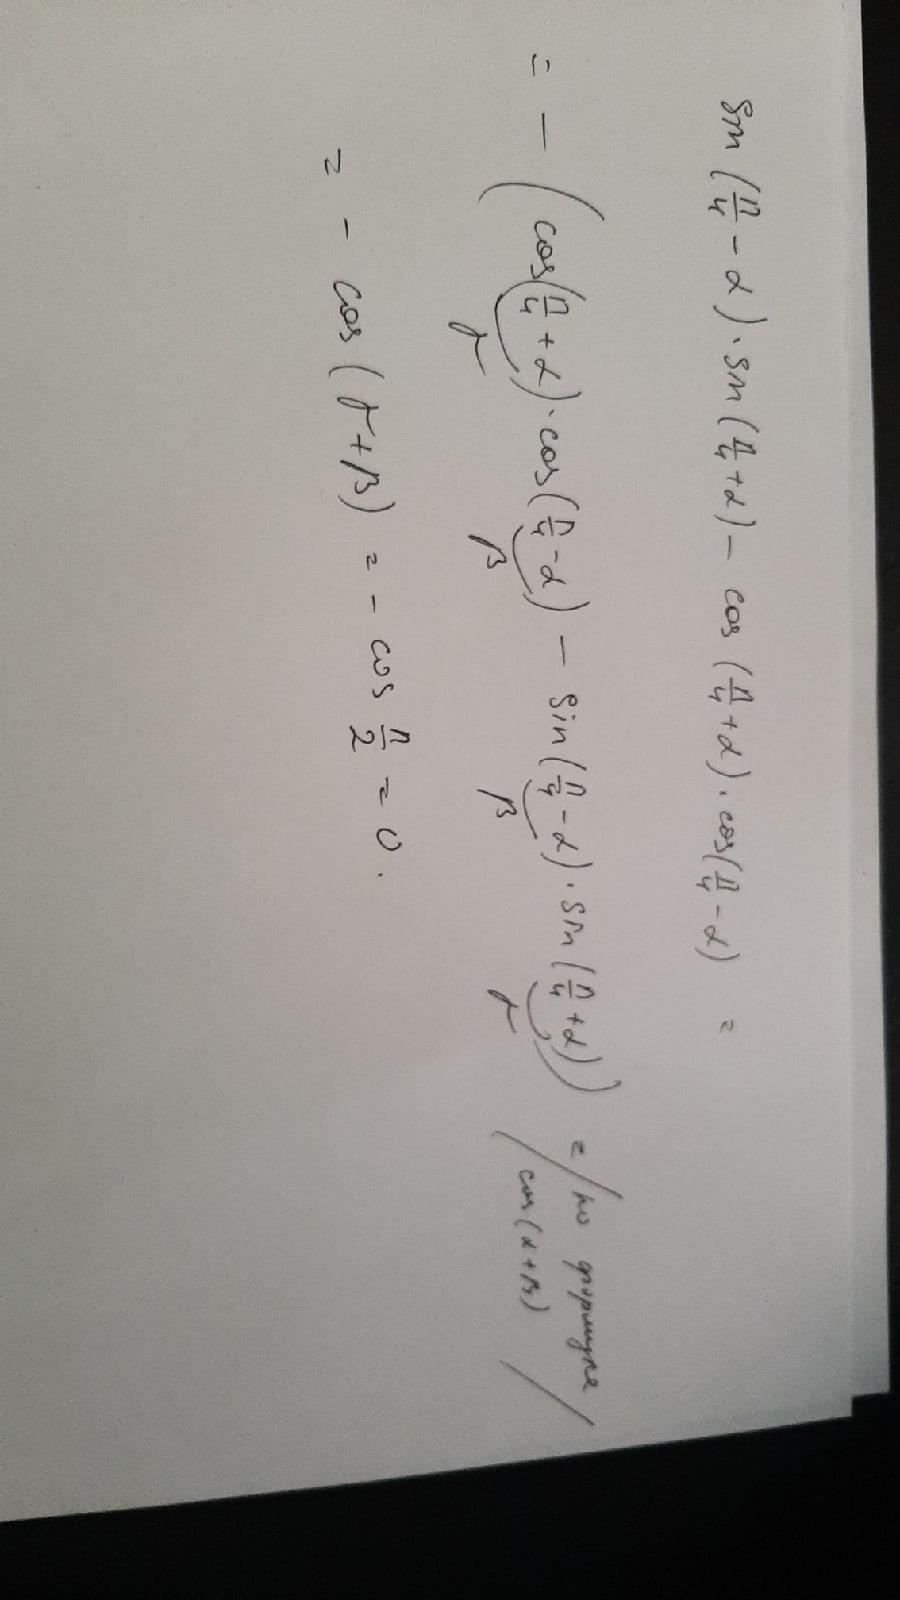 sin (π/4 - α) · sin (π/4 + α) - cos (π/4 + α) · cos (π/4 - α) =
= - (cos (π/4 + α) · cos (π/4 - α) - sin (π/4 - α) · sin (π/4 + α)) = / по формуле
γ β β γ cos (α + β) /
= - cos (γ + β) = - cos π/2 = 0.